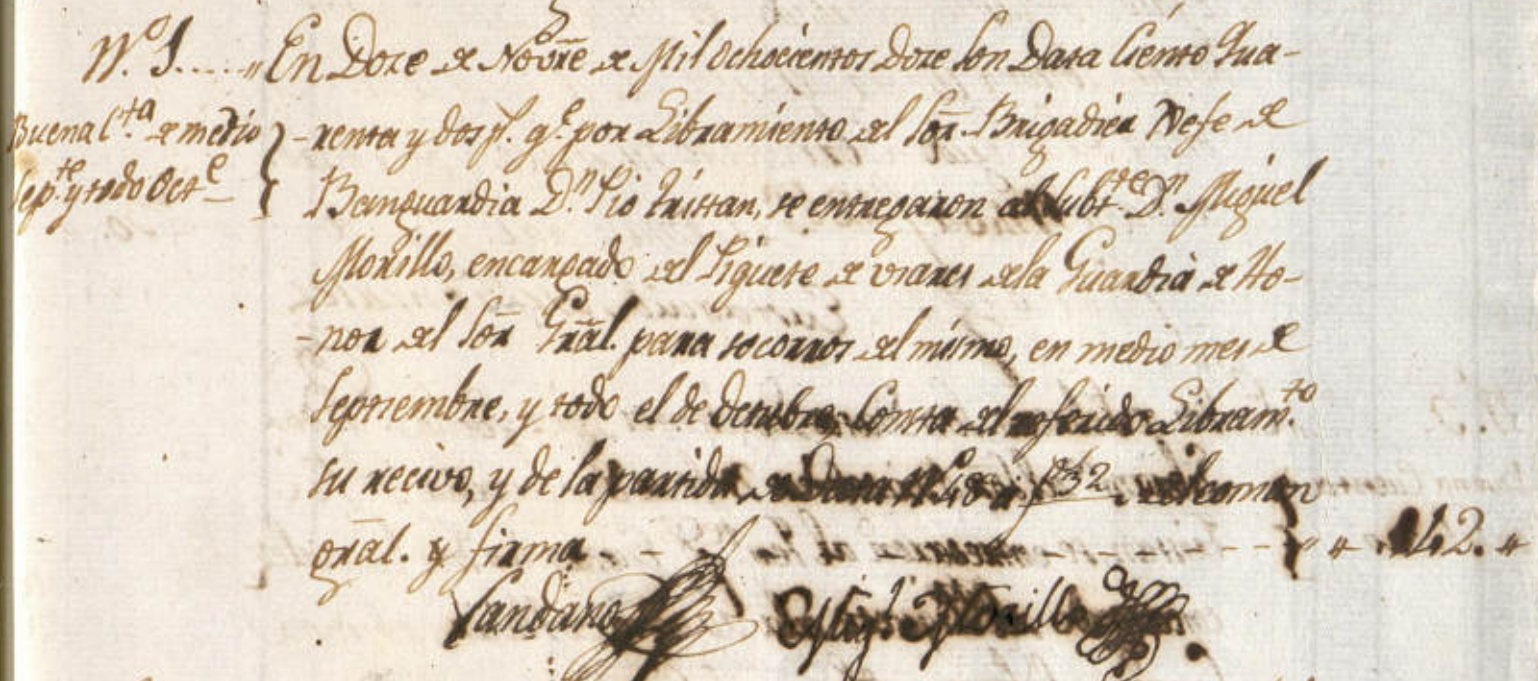 N.º 1..... En Doze de Novre de Mil ochocientos doze son Data Ciento qua-
Buena Cta de medio -renta y dos p.s q.e por Libramiento del Sor. Brigadier Xefe de
Sep.te y todo Oct.e Banguardia D.n Pio tristan, se entregaron al Subte D.n Miguel
Morillo, encargado del Piquete de usares dela Guardia de Ho-
-nor del Sor Gral. para socorros del mismo, en medio mes de
Septiembre, y todo el de octubre, Consta del referido Libram.to
su recivo, y de la partida de Data N.º 48 a f 32 del comun
gral. y firma - - - - - - - - - - - " " 142. "
Landano Migl Morillo